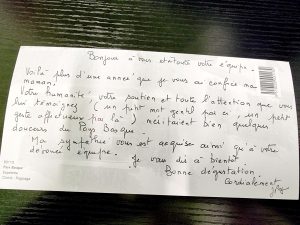 Bonjour à vous et à toute votre équipe.
Voilà plus d'une année que je vous ai confié ma
maman.
Votre humanité, votre soutien et toute l'attention que vous
lui témoignez (un petit mot gentil par ci, un petit
geste affectueux par là) méritaient bien quelques
douceurs du Pays Basque.
Ma sympathie vous est acquise ainsi qu'à votre
dévouée équipe.
Je vous dis à bientôt
Bonne dégustation
Cordialement
Pays Basque